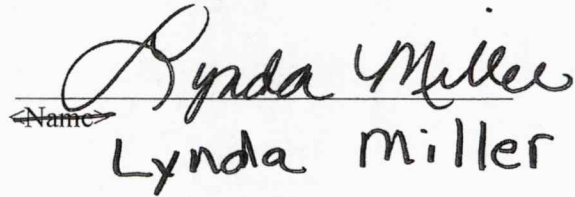 Lynda Miller
<Name>
Lynda Miller